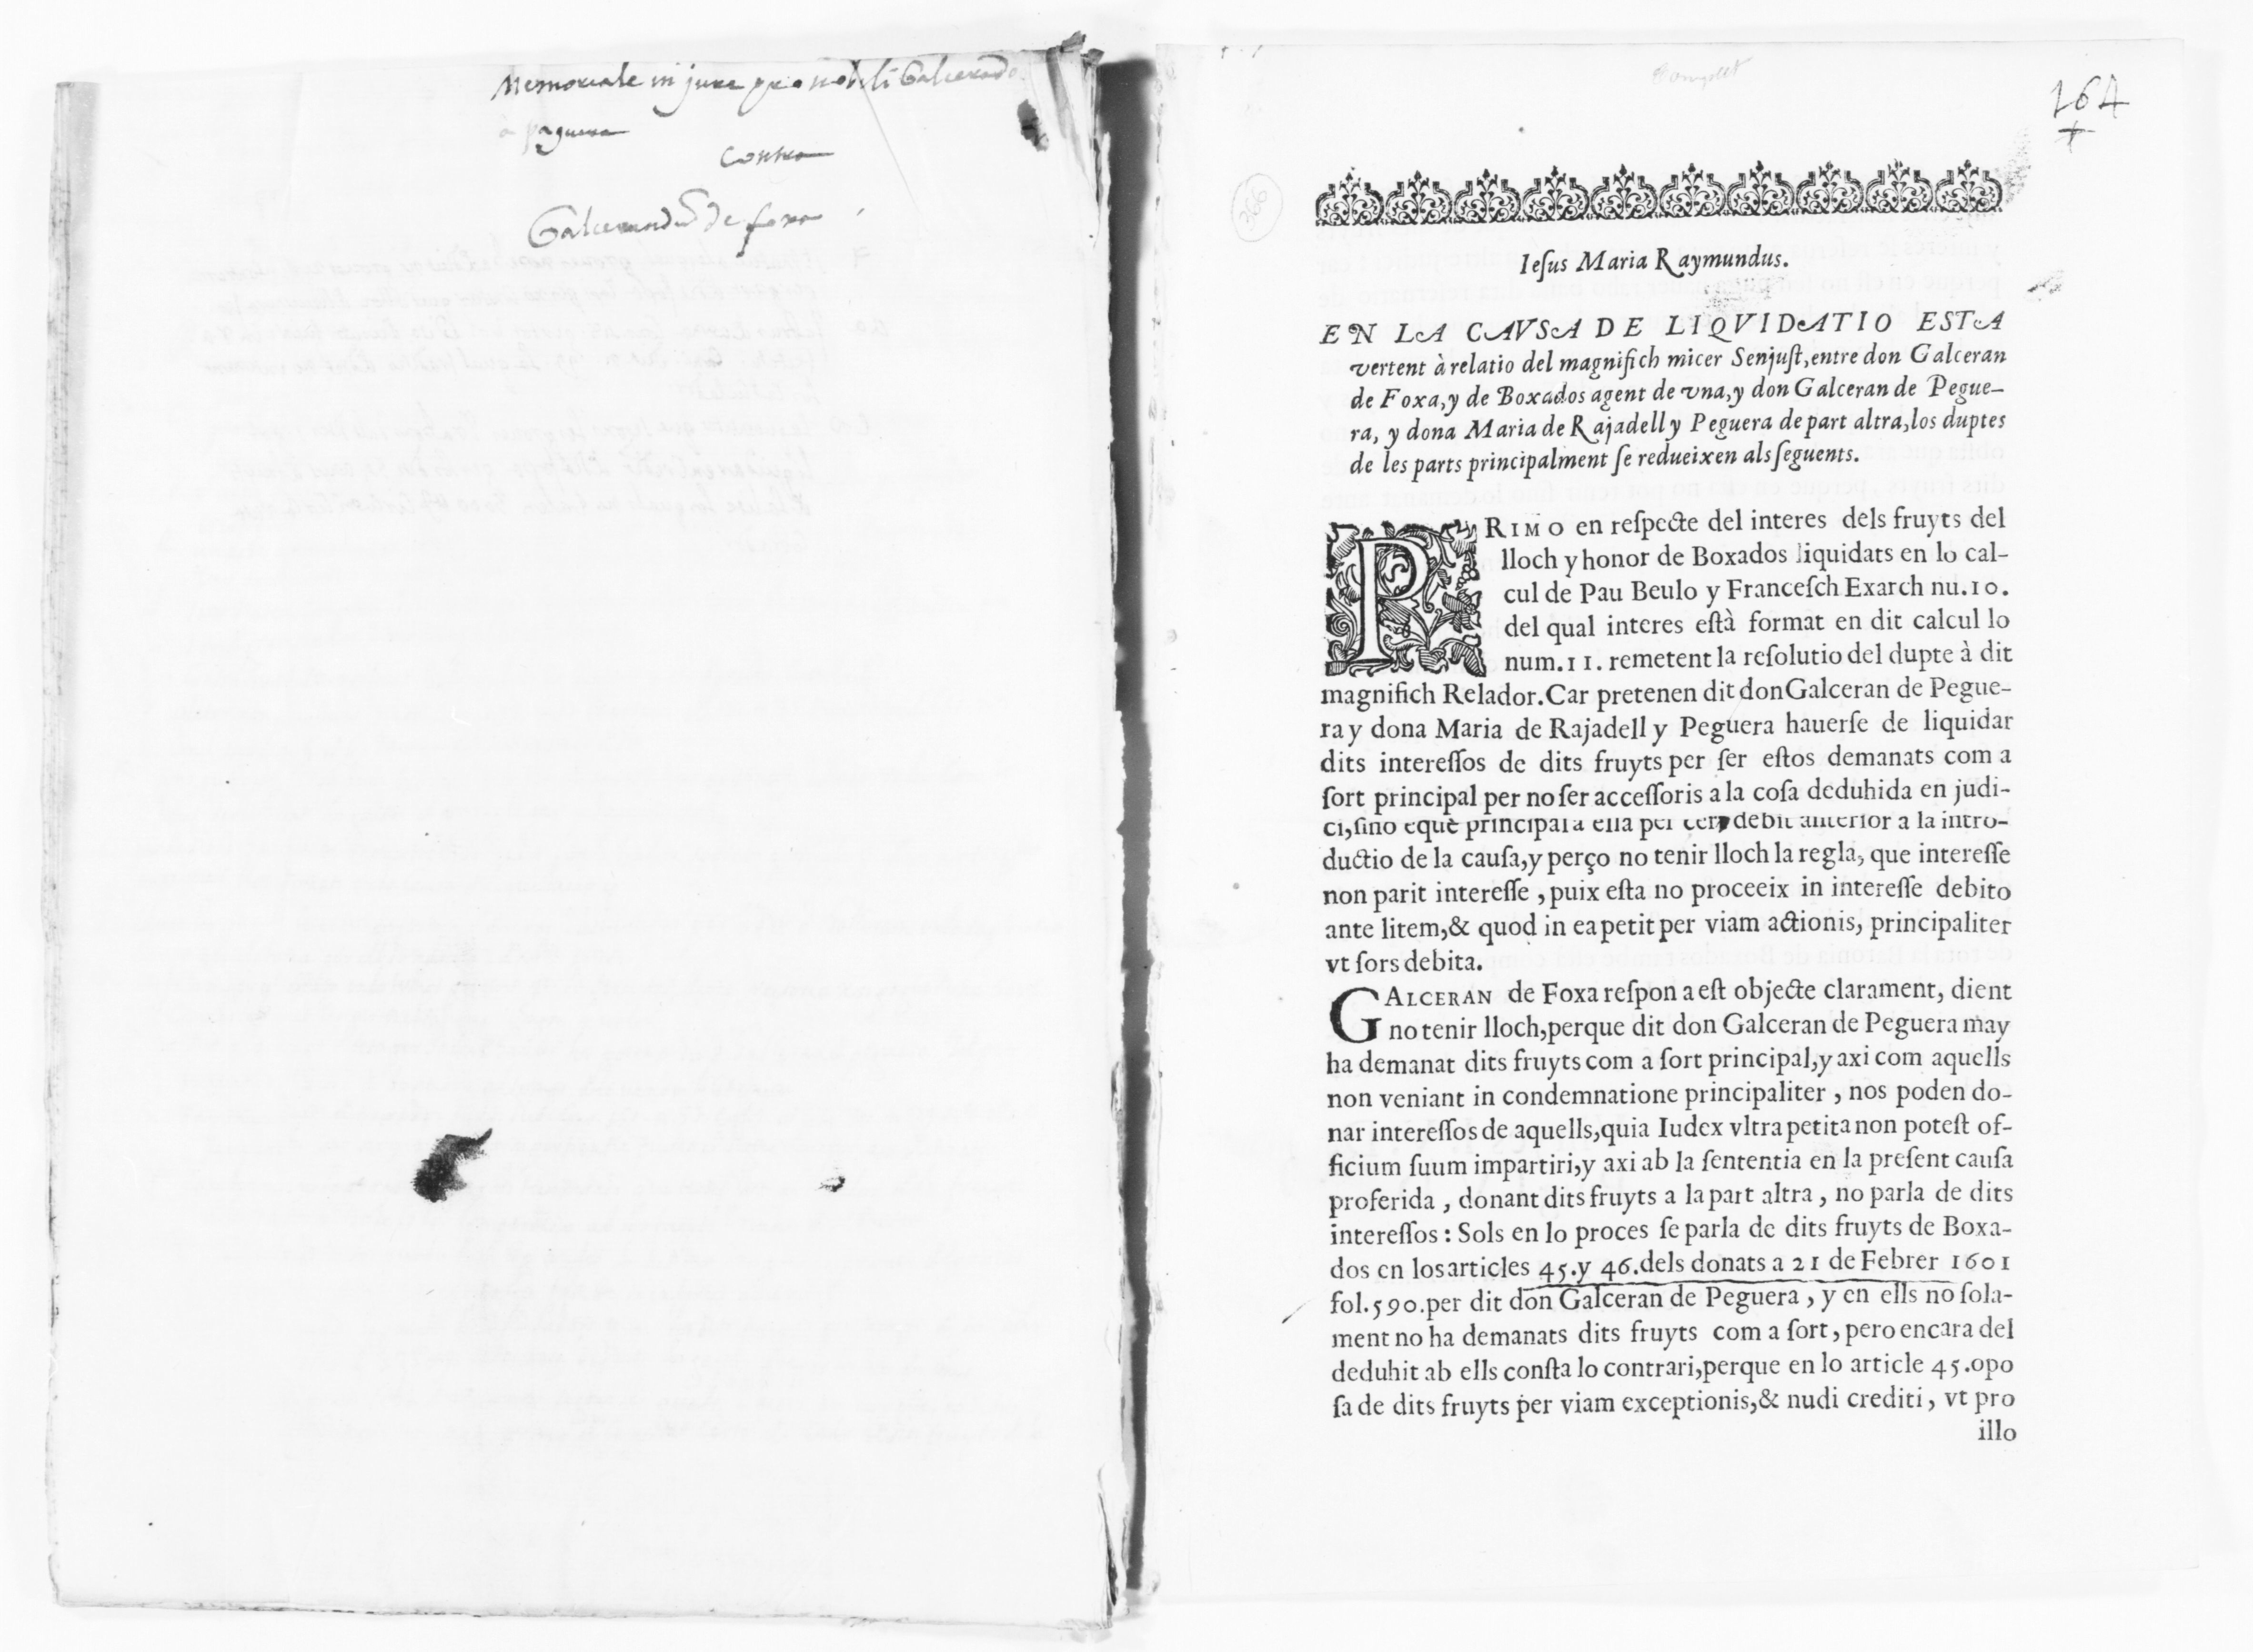 Memoriale in jure pro nobili Galcerando
à Paguera
Contra
Galcerandũ de foxa
Complet
164
366
Iesus Maria Raymundus.
EN LA CAVSA DE LIQVIDATIO ESTA
vertent à relatio del magnifich micer Senjuſt, entre don Galceran
de Foxa, y de Boxados agent de vna, y don Galceran de Pegue-
ra, y dona Maria de Rajadell y Peguera de part altra, los duptes
de les parts principalment ſe redueixen als ſeguents.
PRIMO en reſpecte del interes dels fruyts del
lloch y honor de Boxados liquidats en lo cal-
cul de Pau Beulo y Franceſch Exarch nu. 10.
del qual interes eſtà format en dit calcul lo
num. 11. remetent la reſolutio del dupte à dit
magnifich Relador. Car pretenen dit don Galceran de Pegue-
ra y dona Maria de Rajadell y Peguera hauerſe de liquidar
dits intereſſos de dits fruyts per ſer eſtos demanats com a
ſort principal per no ſer acceſſoris a la coſa deduhida en judi-
ci, ſino equè principal a ella per cert debit anterior a la intro-
ductio de la cauſa, y perço no tenir lloch la regla, que intereſſe
non parit intereſſe, puix eſta no proceeix in intereſſe debito
ante litem, & quod in ea petit per viam actionis, principaliter
vt ſors debita.
GALCERAN de Foxa reſpon a eſt objecte clarament, dient
no tenir lloch, perque dit don Galceran de Peguera may
ha demanat dits fruyts com a ſort principal, y axi com aquells
non veniant in condemnatione principaliter, nos poden do-
nar intereſſos de aquells, quia Iudex vltra petita non poteſt of-
ficium ſuum impartiri, y axi ab la ſententia en la preſent cauſa
proferida, donant dits fruyts a la part altra, no parla de dits
intereſſos: Sols en lo proces ſe parla de dits fruyts de Boxa-
dos en los articles 45. y 46. dels donats a 21 de Febrer 1601
fol. 590. per dit don Galceran de Peguera, y en ells no ſola-
ment no ha demanats dits fruyts com a ſort, pero encara del
deduhit ab ells conſta lo contrari, perque en lo article 45. opo
ſa de dits fruyts per viam exceptionis, & nudi crediti, vt pro
illo